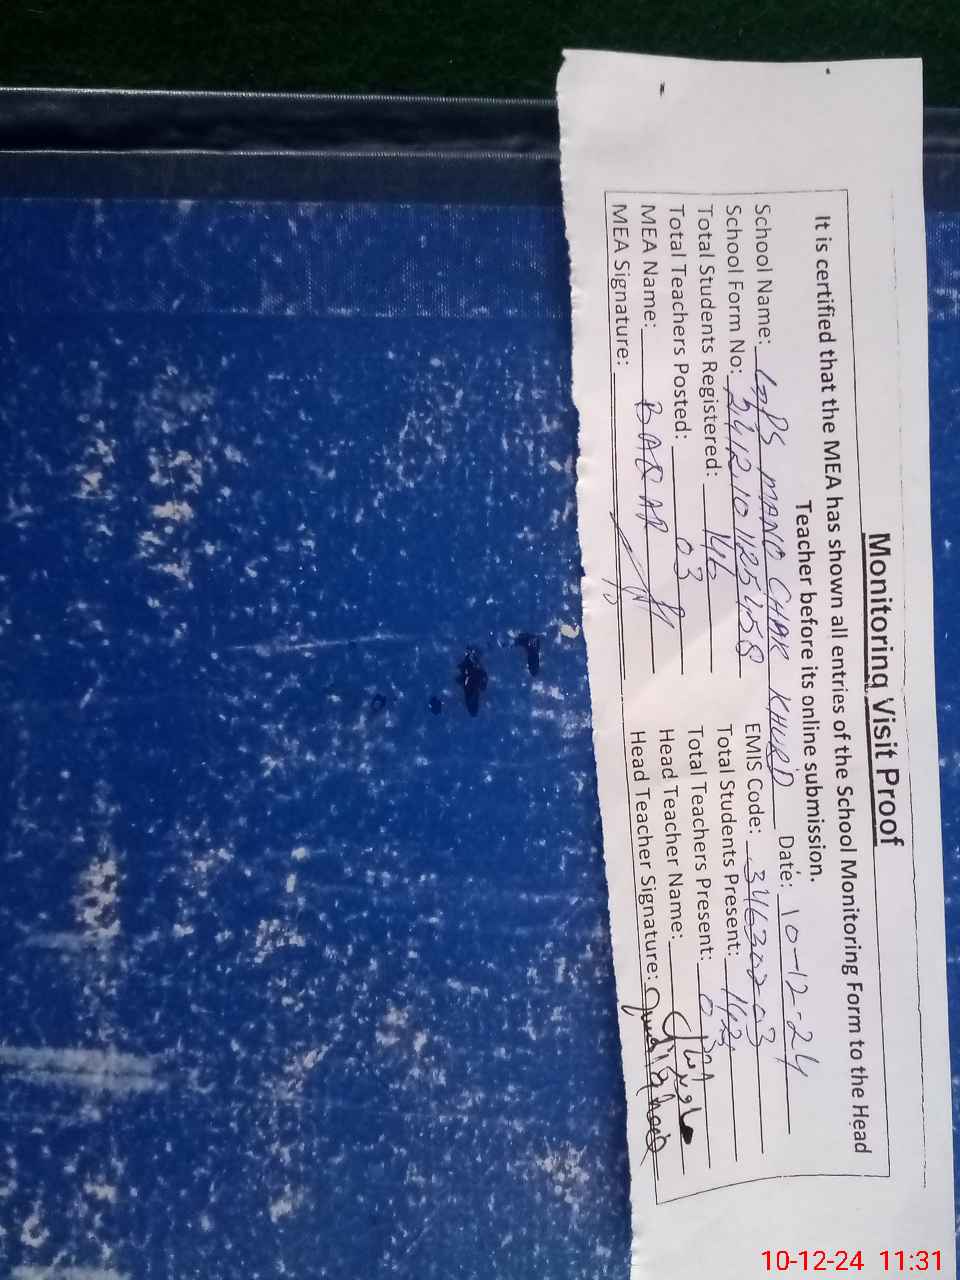 Monitoring Visit Proof
It is certified that the MEA has shown all entries of the School Monitoring Form to the Head
Teacher before its online submission.
School Name: GPS MANO CHAK KHURD Date: 10-12-24
School Form No: 241210 1125458 EMIS Code: 34630203
Total Students Registered: 146 Total Students Present: 143
Total Teachers Posted: 03 Total Teachers Present: 03
MEA Name: BAQAR Head Teacher Name:
MEA Signature: Head Teacher Signature:
10-12-24 11:31